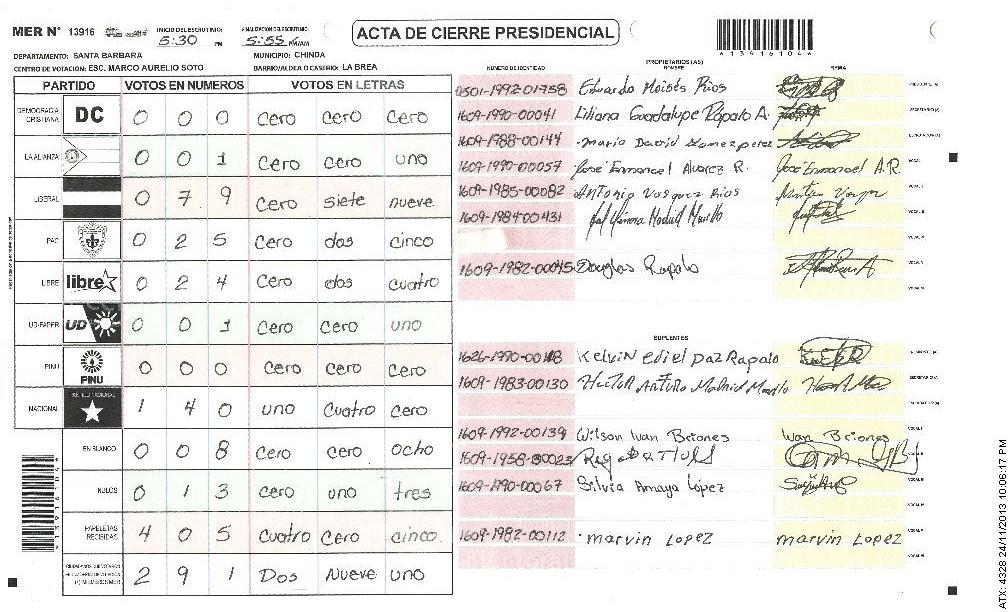 MER N° 13916
INICIO DEL ESCRUTINIO: 5:30 PM
FINALIZACION DEL ESCRUTINIO: 5:55 PM/AM
ACTA DE CIERRE PRESIDENCIAL
DEPARTAMENTO: SANTA BARBARA
MUNICIPIO: CHINDA
CENTRO DE VOTACION: ESC. MARCO AURELIO SOTO
BARRIO/ALDEA O CASERIO: LA BREA
PARTIDO VOTOS EN NUMEROS VOTOS EN LETRAS
DEMOCRACIA CRISTIANA DC 0 0 0 cero cero cero
LA ALIANZA 0 0 1 cero cero uno
LIBERAL 0 7 9 cero siete nueve
PAC 0 2 5 cero dos cinco
LIBRE libre 0 2 4 cero dos cuatro
UD-FAPER UD 0 0 1 cero cero uno
PINU PINU 0 0 0 cero cero cero
NACIONAL 1 4 0 uno cuatro cero
EN BLANCO 0 0 8 cero cero ocho
NULOS 0 1 3 cero uno tres
PAPELETAS RECIBIDAS 4 0 5 cuatro cero cinco
2 9 1 Dos Nueve uno
NUMERO DE IDENTIDAD
PROPIETARIOS (AS)
NOMBRE
FIRMA
0501-1992-01758 Eduardo Moisés Rios
1609-1990-00041 Liliana Guadalupe Rápalo A.
1609-1988-00144 Mario David
1609-1990-00057 José Enmanoel Alvarez R. José Enmanoel A.R.
1609-1985-00082 Antonio Vasquez Rios
1609-1984-00431
1609-1982-00045 Douglas Rapalo
SUPLENTES
1626-1990-00118 Kelvin ediel Paz Rapalo
1609-1983-00130 Hector Arturo Madrid Murillo
1609-1992-00139 Wilson Ivan Briones Ivan Briones
1609-1958-00023
1609-1990-00067 Silvia Amaya López
1609-1982-00112 marvin Lopez marvin Lopez
ATX: 4328 24/11/2013 10:06:17 PM